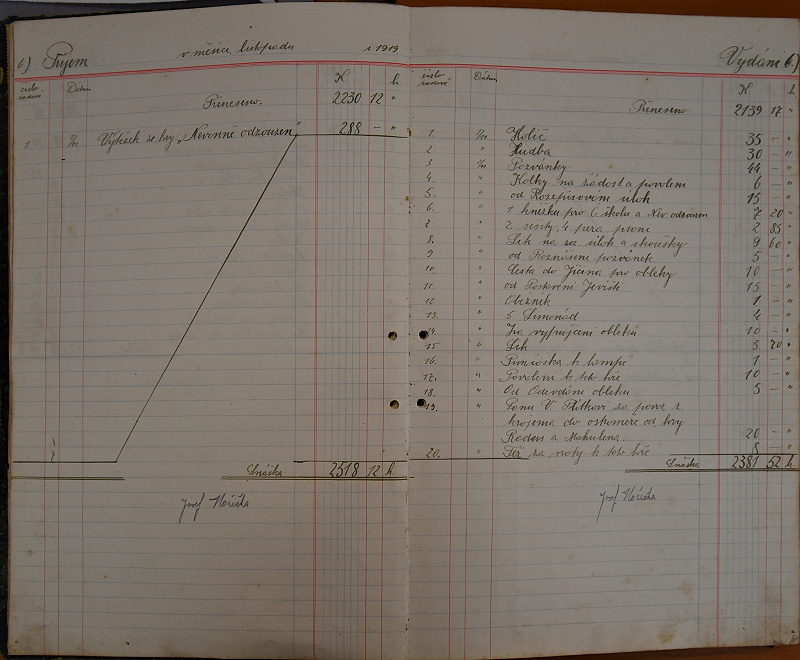 6) Příjem v měsíci listopadu r. 1919
číslo řadové. Datum K h
Přeneseno. 2230 12 "
1 1/11 Výtěžek ze hry „Nevinně odsouzen" 288 — "
Snáška 2518 12 h.
Josef
Vydání 6.)
číslo řadové. Datum K h
Přeneseno 2139 17 "
1. 1/11 Holič 35 — "
2. " Hudba 30 — "
3 1/11 Pozvánky 44 — "
4. " Kolky na žádost a povolení 6 — "
5. " od Rozepisování úloh 15 — "
6. " 1 knížku pro C. školu a Nev odsouzen 7 20 "
7 " 2 sešity 4 pera psaní 2 85 "
8. " Líh na úloh a zkoušky 9 60 "
9 " od Roznášení pozvánek 5 — "
10. " Cesta do Jičína pro obleky 10 — "
11. " od Jeviště 15 — "
12 " Obežník 1 — "
13. " 5 Limonád 4 — "
14. " Za vypůjčení obleků 10 — "
15 " Líh 3 70 "
16. " k lampě 1 — "
17. " Povolení k této hře 10 — "
18. " Od Odevdání obleků 5 — "
19. " Panu V. za povoz s
krojema do od hry
Radúz a Mahulena. 20 — "
20. " za noty k této hře 8 — "
Snáška 2381 52 h.
Josef